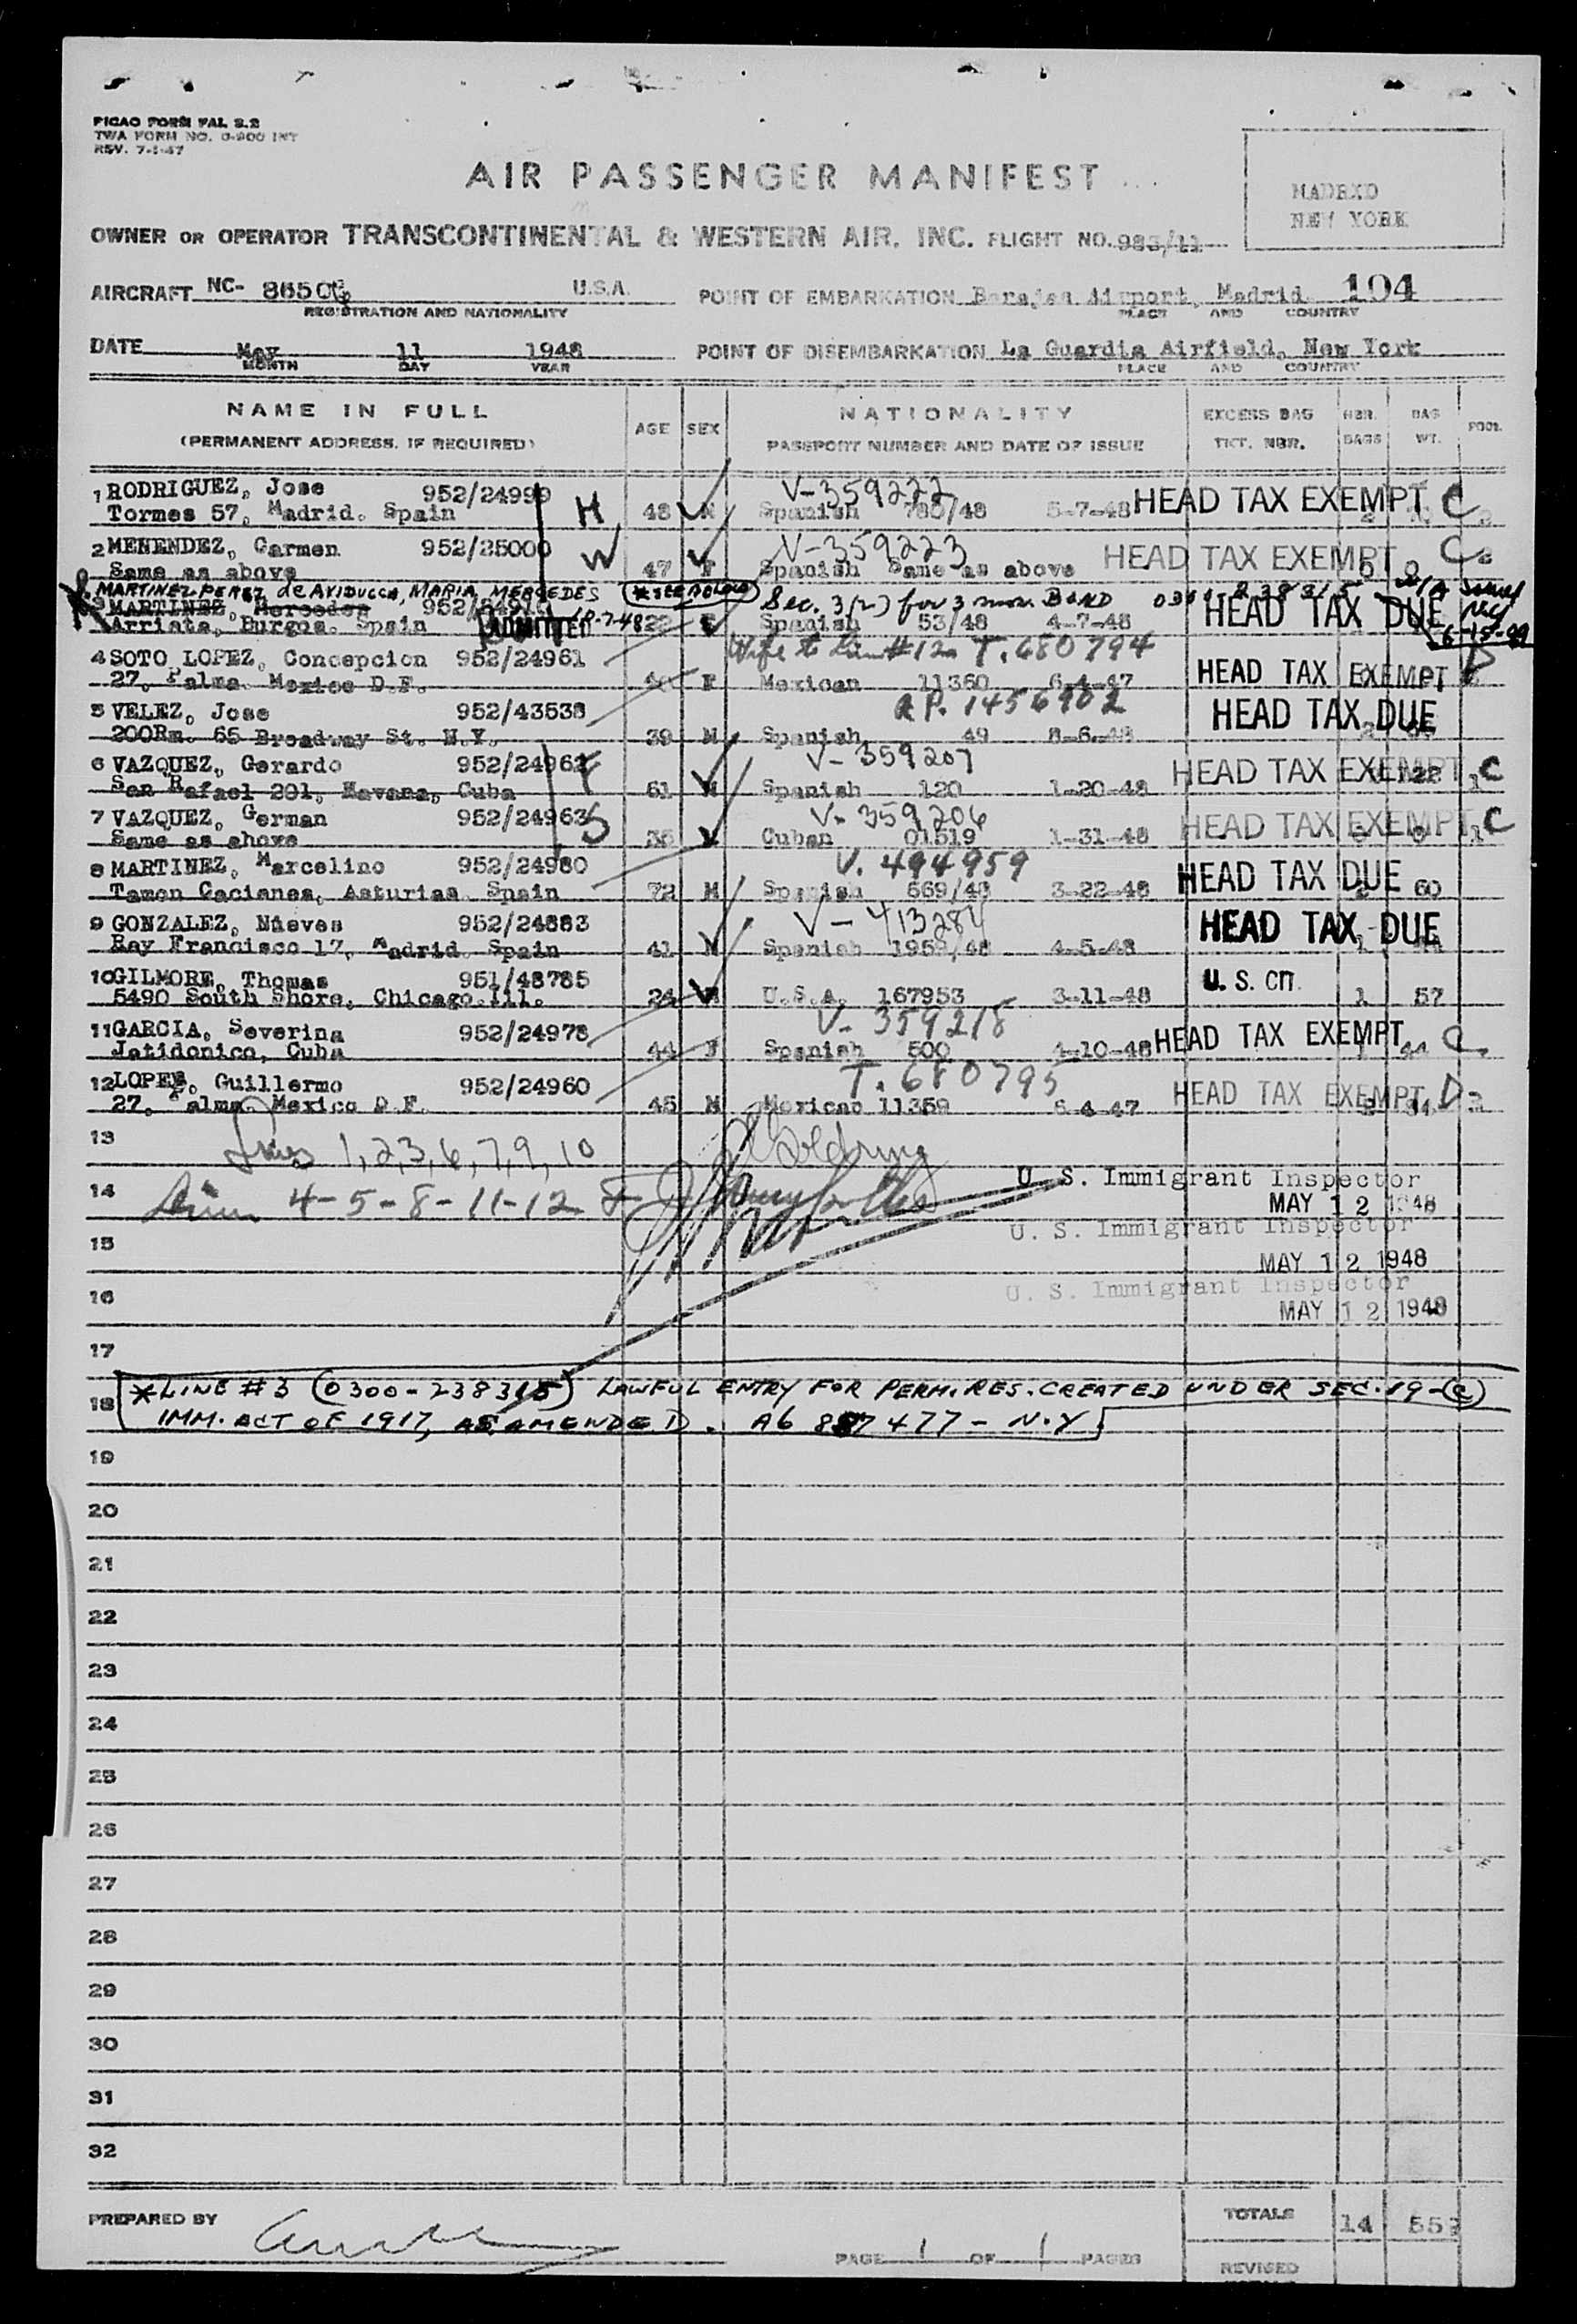 PICAO FORM PAL 2.2
TWA FORM NO. 0-900 INT
REV. 7-1-47
AIR PASSENGER MANIFEST
MADRID
NEW YORK
OWNER OR OPERATOR TRANSCONTINENTAL & WESTERN AIR, INC. FLIGHT NO. 983/11
AIRCRAFT NC- 8650 U.S.A. POINT OF EMBARKATION Barajas Airport, Madrid 104
REGISTRATION AND NATIONALITY PLACE AND COUNTRY
DATE May 11 1948 POINT OF DISEMBARKATION La Guardia Airfield, New York
MONTH DAY YEAR PLACE AND COUNTRY
NAME IN FULL AGE SEX NATIONALITY EXCESS BAG NBR. BAG POOL
(PERMANENT ADDRESS, IF REQUIRED) PASSPORT NUMBER AND DATE OF ISSUE TKT. NBR. BAGS WT.
1 RODRIGUEZ, Jose 952/24999 H V-359222
Tormes 57, Madrid. Spain 48 M Spanish 780/48 5-7-48 HEAD TAX EXEMPT C
2 MENENDEZ, Carmen 952/25000 W V-359223
Same as above 47 F Spanish Same as above HEAD TAX EXEMPT C
MARTINEZ-PEREZ de AVIDUCCA, MARIA MERCEDES *SEE BELOW Sec. 3(2) for 3 mos. BOND
3 MARTINEZ, Mercedes 952/
Arriata, Burgos. Spain ADMITTED F Spanish 53/48 4-7-48 HEAD TAX DUE
4 SOTO LOPEZ, Concepcion 952/24961 Wife to Line #12 T. 680794
27, Palma. Mexico D.F. F Mexican 11360 6-4-47 HEAD TAX EXEMPT D
5 VELEZ, Jose 952/43538 R P. 1456902
200Rm. 65 Broadway St. N.Y. 39 M Spanish 49 8-6-48 HEAD TAX DUE
6 VAZQUEZ, Gerardo 952/24962 F V-359207
San Rafael 291, Havana, Cuba 61 M Spanish 120 1-20-48 HEAD TAX EXEMPT 1 C
7 VAZQUEZ, German 952/24963 S V-359206
Same as above 35 Cuban 01519 1-31-48 HEAD TAX EXEMPT 1 C
8 MARTINEZ, Marcelino 952/24980 V. 494959
Tamon Cacianes, Asturias. Spain 72 M Spanish 569/48 3-22-48 HEAD TAX DUE 60
9 GONZALEZ, Nieves 952/24883 V-413284
Ray Francisco 17, Madrid. Spain 41 Spanish 1959/48 4-5-48 HEAD TAX DUE
10 GILMORE, Thomas 951/48785
5490 South Shore, Chicago.Ill. 24 M U.S.A. 167953 3-11-48 U.S. CIT. 1 57
11 GARCIA, Severina 952/24978 V-359218
Jatidonico, Cuba 44 F Spanish 500 1-10-48 HEAD TAX EXEMPT C.
12 LOPEZ, Guillermo 952/24960 T. 680795
27, Palma. Mexico D.F. 45 M Mexican 11359 6-4-47 HEAD TAX EXEMPT D
13 Lines 1,2,3,6,7,9,10
U. S. Immigrant Inspector
14 Lines 4-5-8-11-12 MAY 12 1948
U. S. Immigrant Inspector
15 MAY 12 1948
U. S. Immigrant Inspector
16 MAY 12 1948
17
18 *LINE #3 (0300-238315) LAWFUL ENTRY FOR PERM. RES. CREATED UNDER SEC. 19-(c)
IMM. ACT OF 1917, AS AMENDED. A6 887477 - N.Y.
19
20
21
22
23
24
25
26
27
28
29
30
31
32
PREPARED BY TOTALS 14 552
PAGE 1 OF 1 PAGES
REVISED